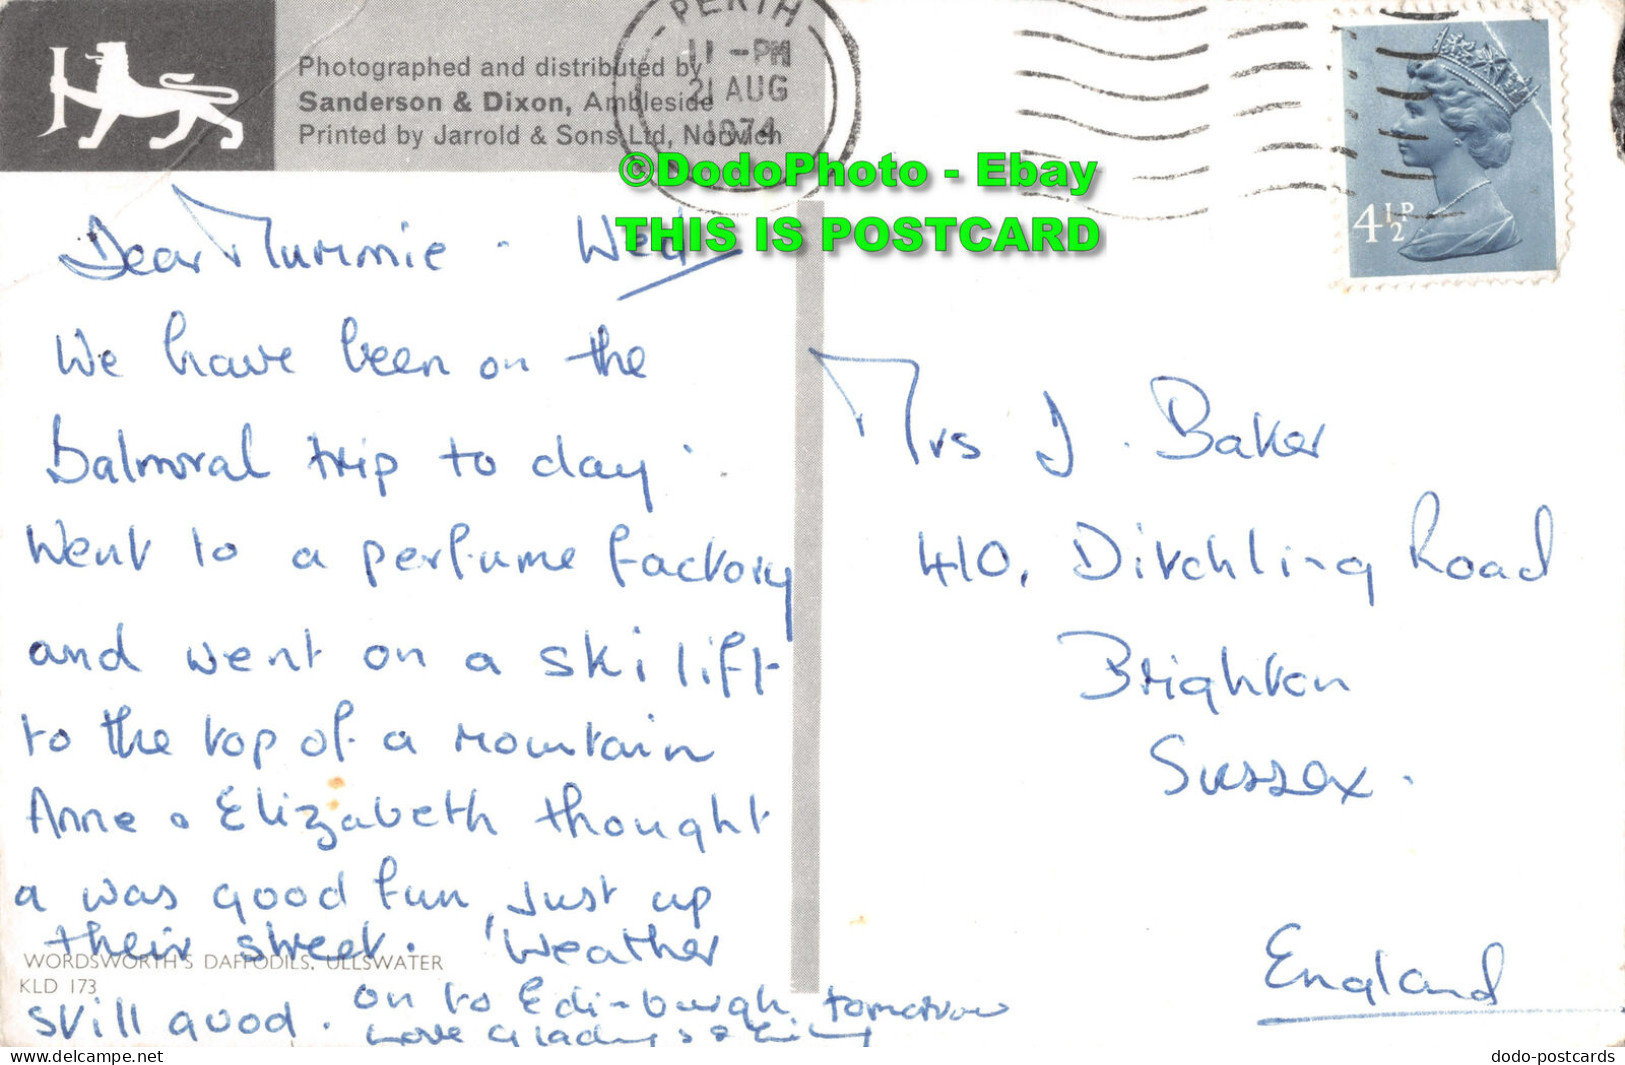 Photographed and distributed by
Sanderson & Dixon, Ambleside
Printed by Jarrold & Sons Ltd, Norwich
PERTH
11 - PM
21 AUG
1974
4½P
©DodoPhoto - Ebay
THIS IS POSTCARD
Dear Mummie - Wed
We have been on the
Balmoral trip to day.
Went to a perfume factory
and went on a ski lift
to the top of a mountain
Anne & Elizabeth thought
a was good fun, Just up
their street. Weather
still good. on to Edinburgh tomorrow
Love Gladys &
Mrs J. Baker
410, Ditchling Road
Brighton
Sussex.
England
WORDSWORTH'S DAFFODILS, ULLSWATER
KLD 173
www.delcampe.net
dodo-postcards